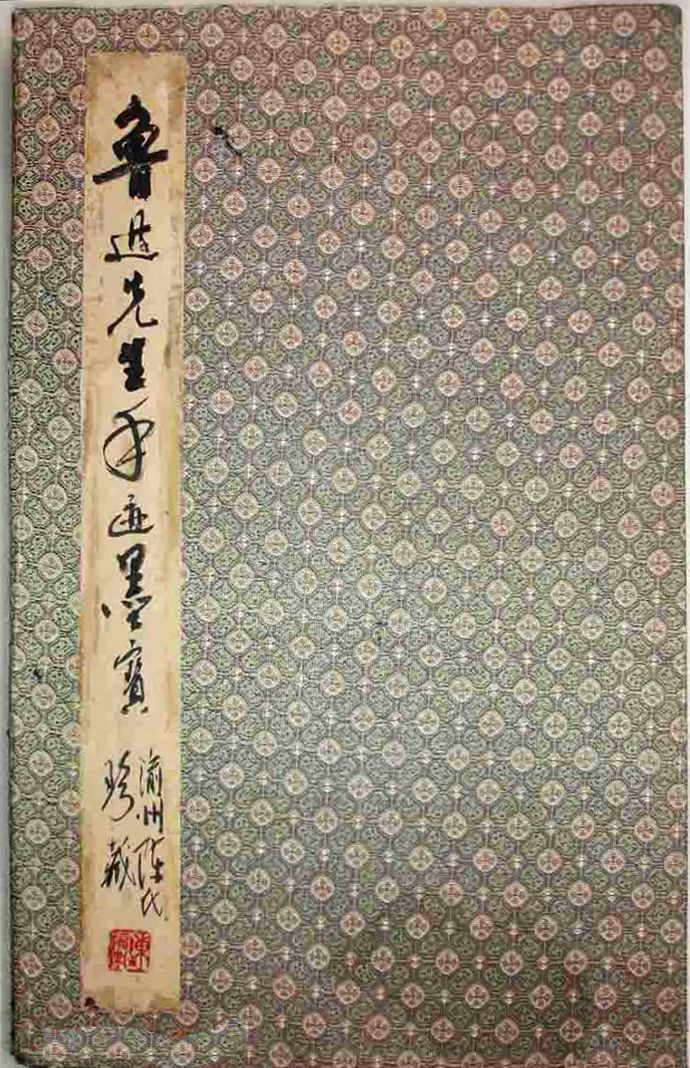 魯迅先生手迹墨寶
渝州陈氏
珍藏